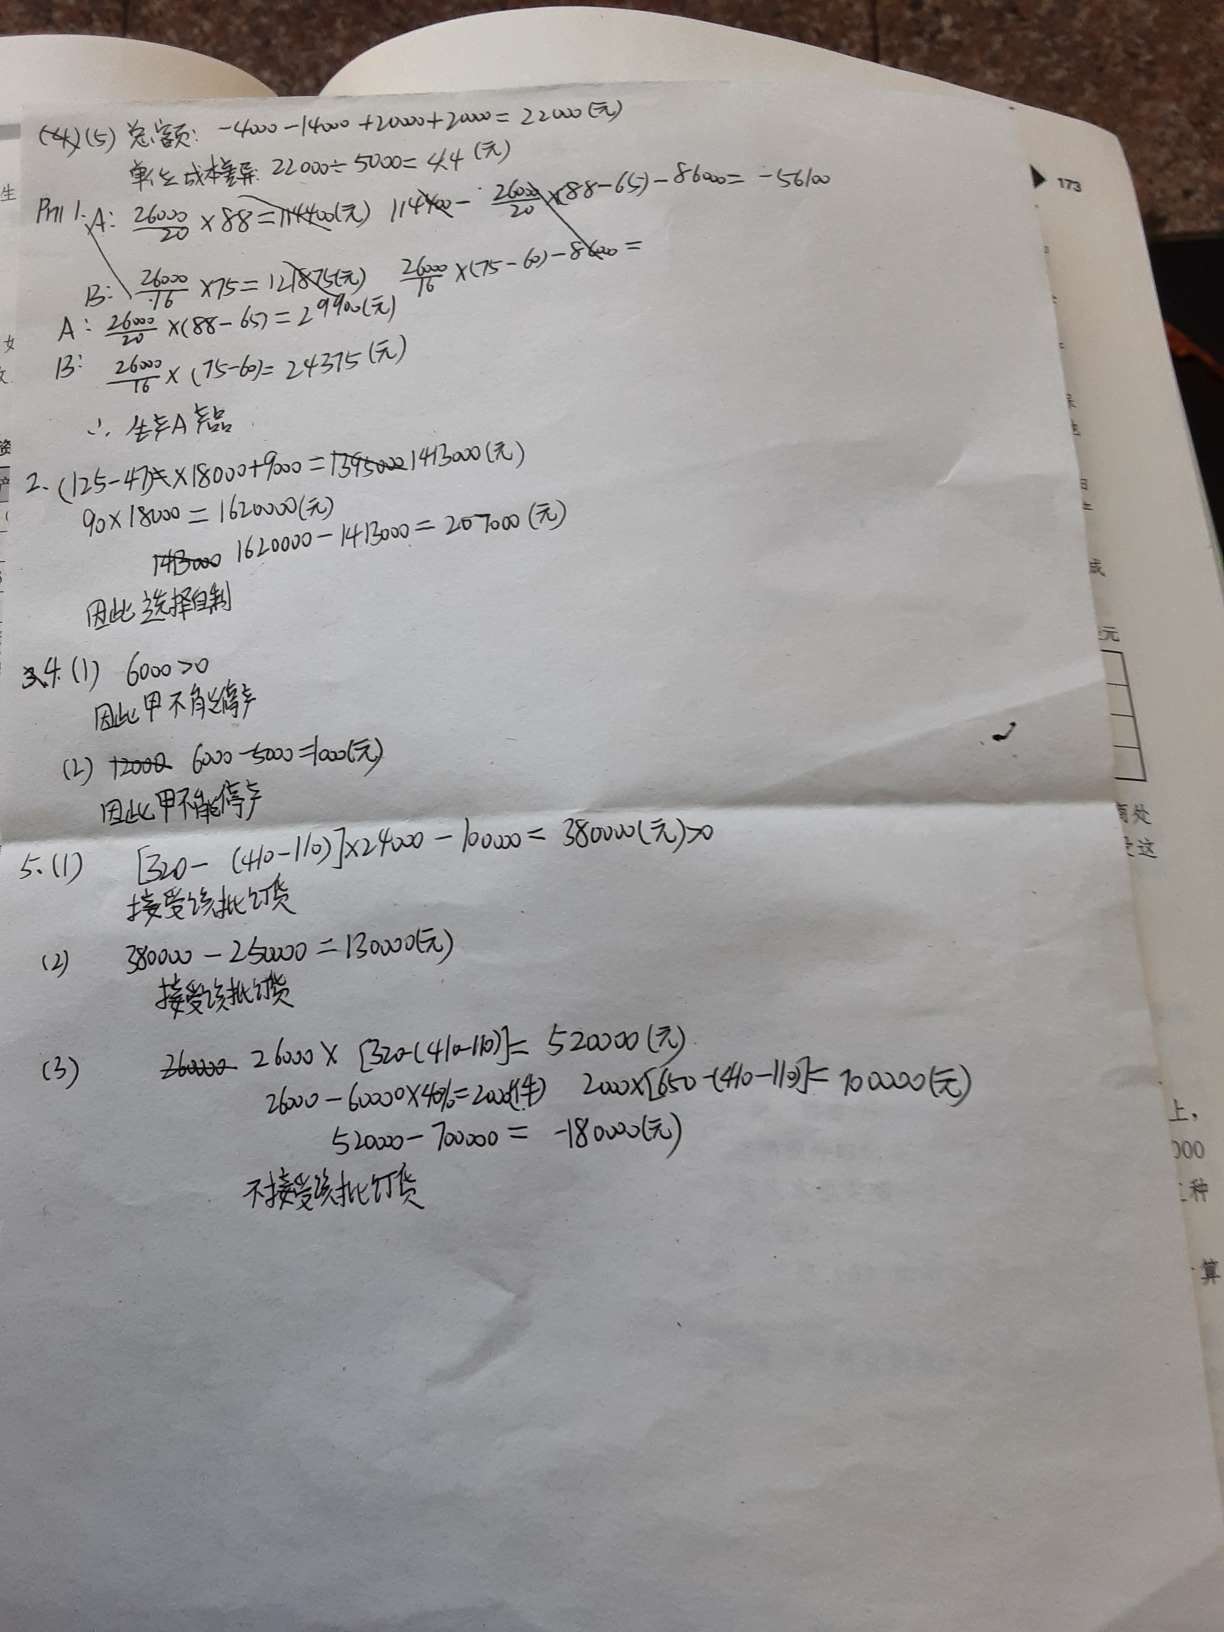 (4)(5) 总额: -4000-14000+20000+20000=22000(元)
单位成本差异: 22000÷5000=4.4(元)
P171 1. A: 26000/20 ×88=114400(元) 114400- 26000/20 ×(88-65)-86000=-56100
B: 26000/16 ×75=121875(元) 26000/16 ×(75-60)-86000=
A: 26000/20 ×(88-65)=29900(元)
B: 26000/16 ×(75-60)=24375(元)
∴ 生产A产品
2. (125-47)××18000+9000=1395000 1413000(元)
90×18000=1620000(元)
1413000 1620000-1413000=207000(元)
因此选择自制
3.4.(1) 6000>0
因此甲不能停产
(2) 12000 6000-5000=1000(元)
因此甲不能停产
5.(1) [320-(410-110)]×24000-100000=380000(元)>0
接受该批订货
(2) 380000-250000=130000(元)
接受该批订货
(3) 260000 26000×[320-(410-110)]=520000(元)
26000-60000×40%=2000(件) 2000×[650-(410-110)]=700000(元)
520000-700000=-180000(元)
不接受该批订货
173
成
元
商处
受这
上,
000
种
算